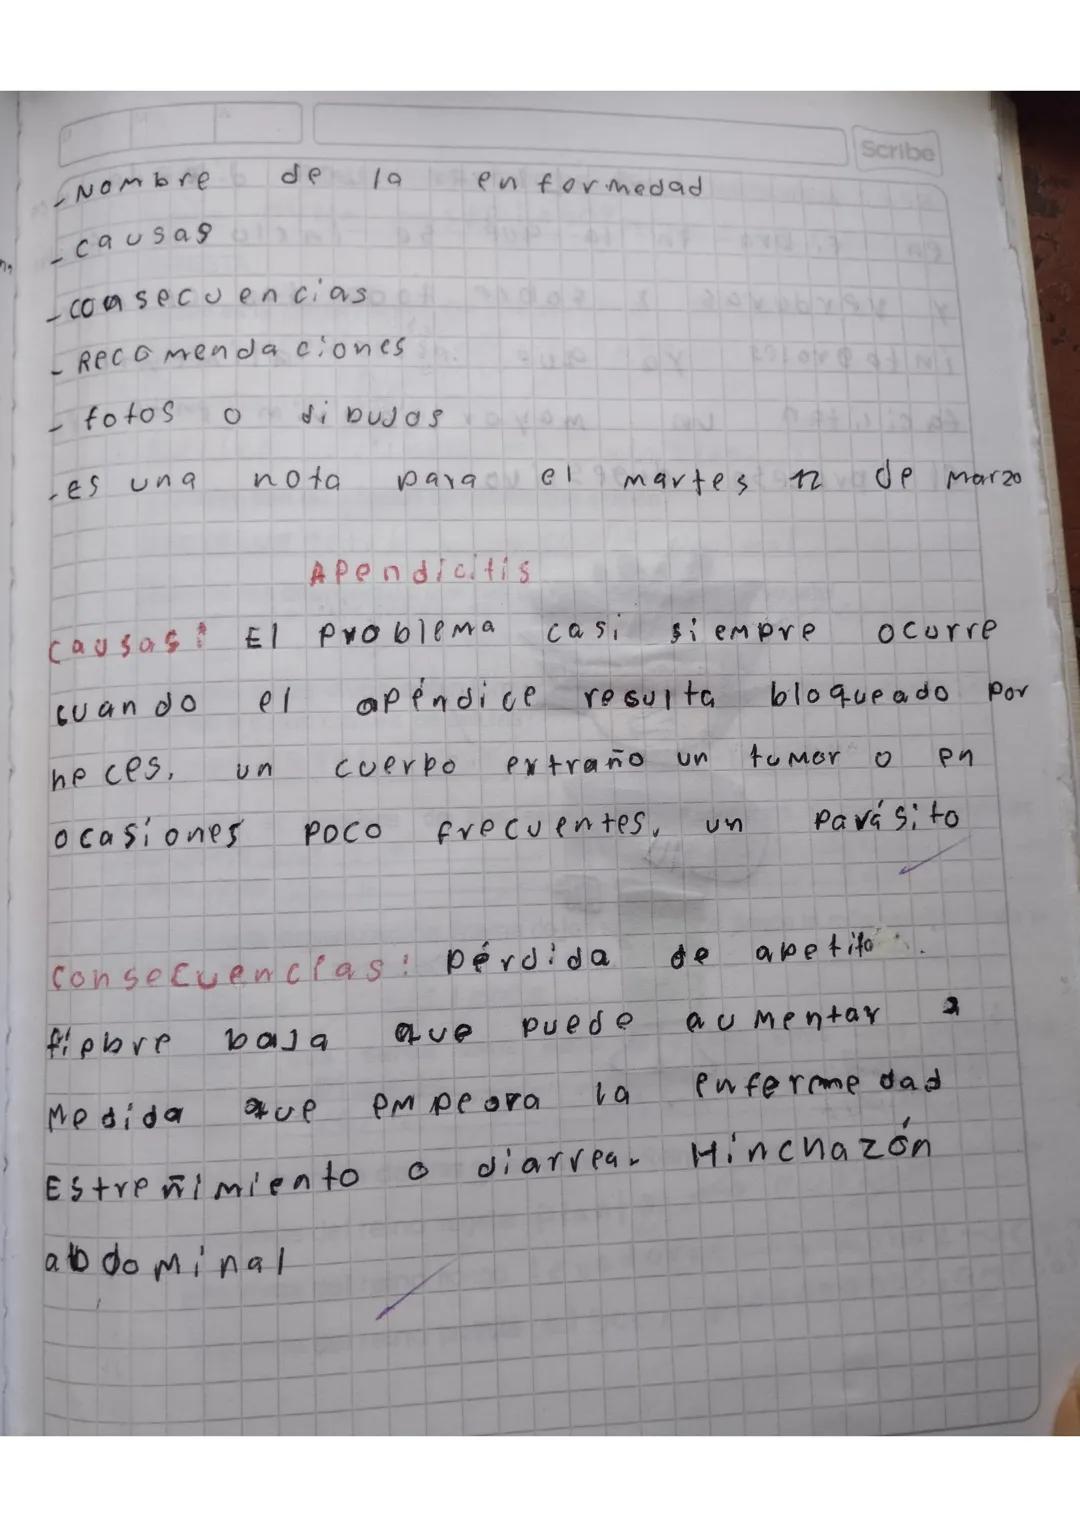 Scribe
- Nombre de la enformedad
- causas
- consecuencias
- Recomendaciones
- fotos o dibujos
- es una nota para el martes 12 de Marzo
Apendicitis
causas: El problema casi siempre ocurre
cuando el apéndice resulta bloqueado por
heces, un cuerpo extraño un tumor o en
ocasiones poco frecuentes, un parásito
Consecuencias: pérdida de apetito.
fiebre baja que puede aumentar a
Medida que empeora la enfermedad
Estreñimiento o diarrea. Hinchazón
abdominal